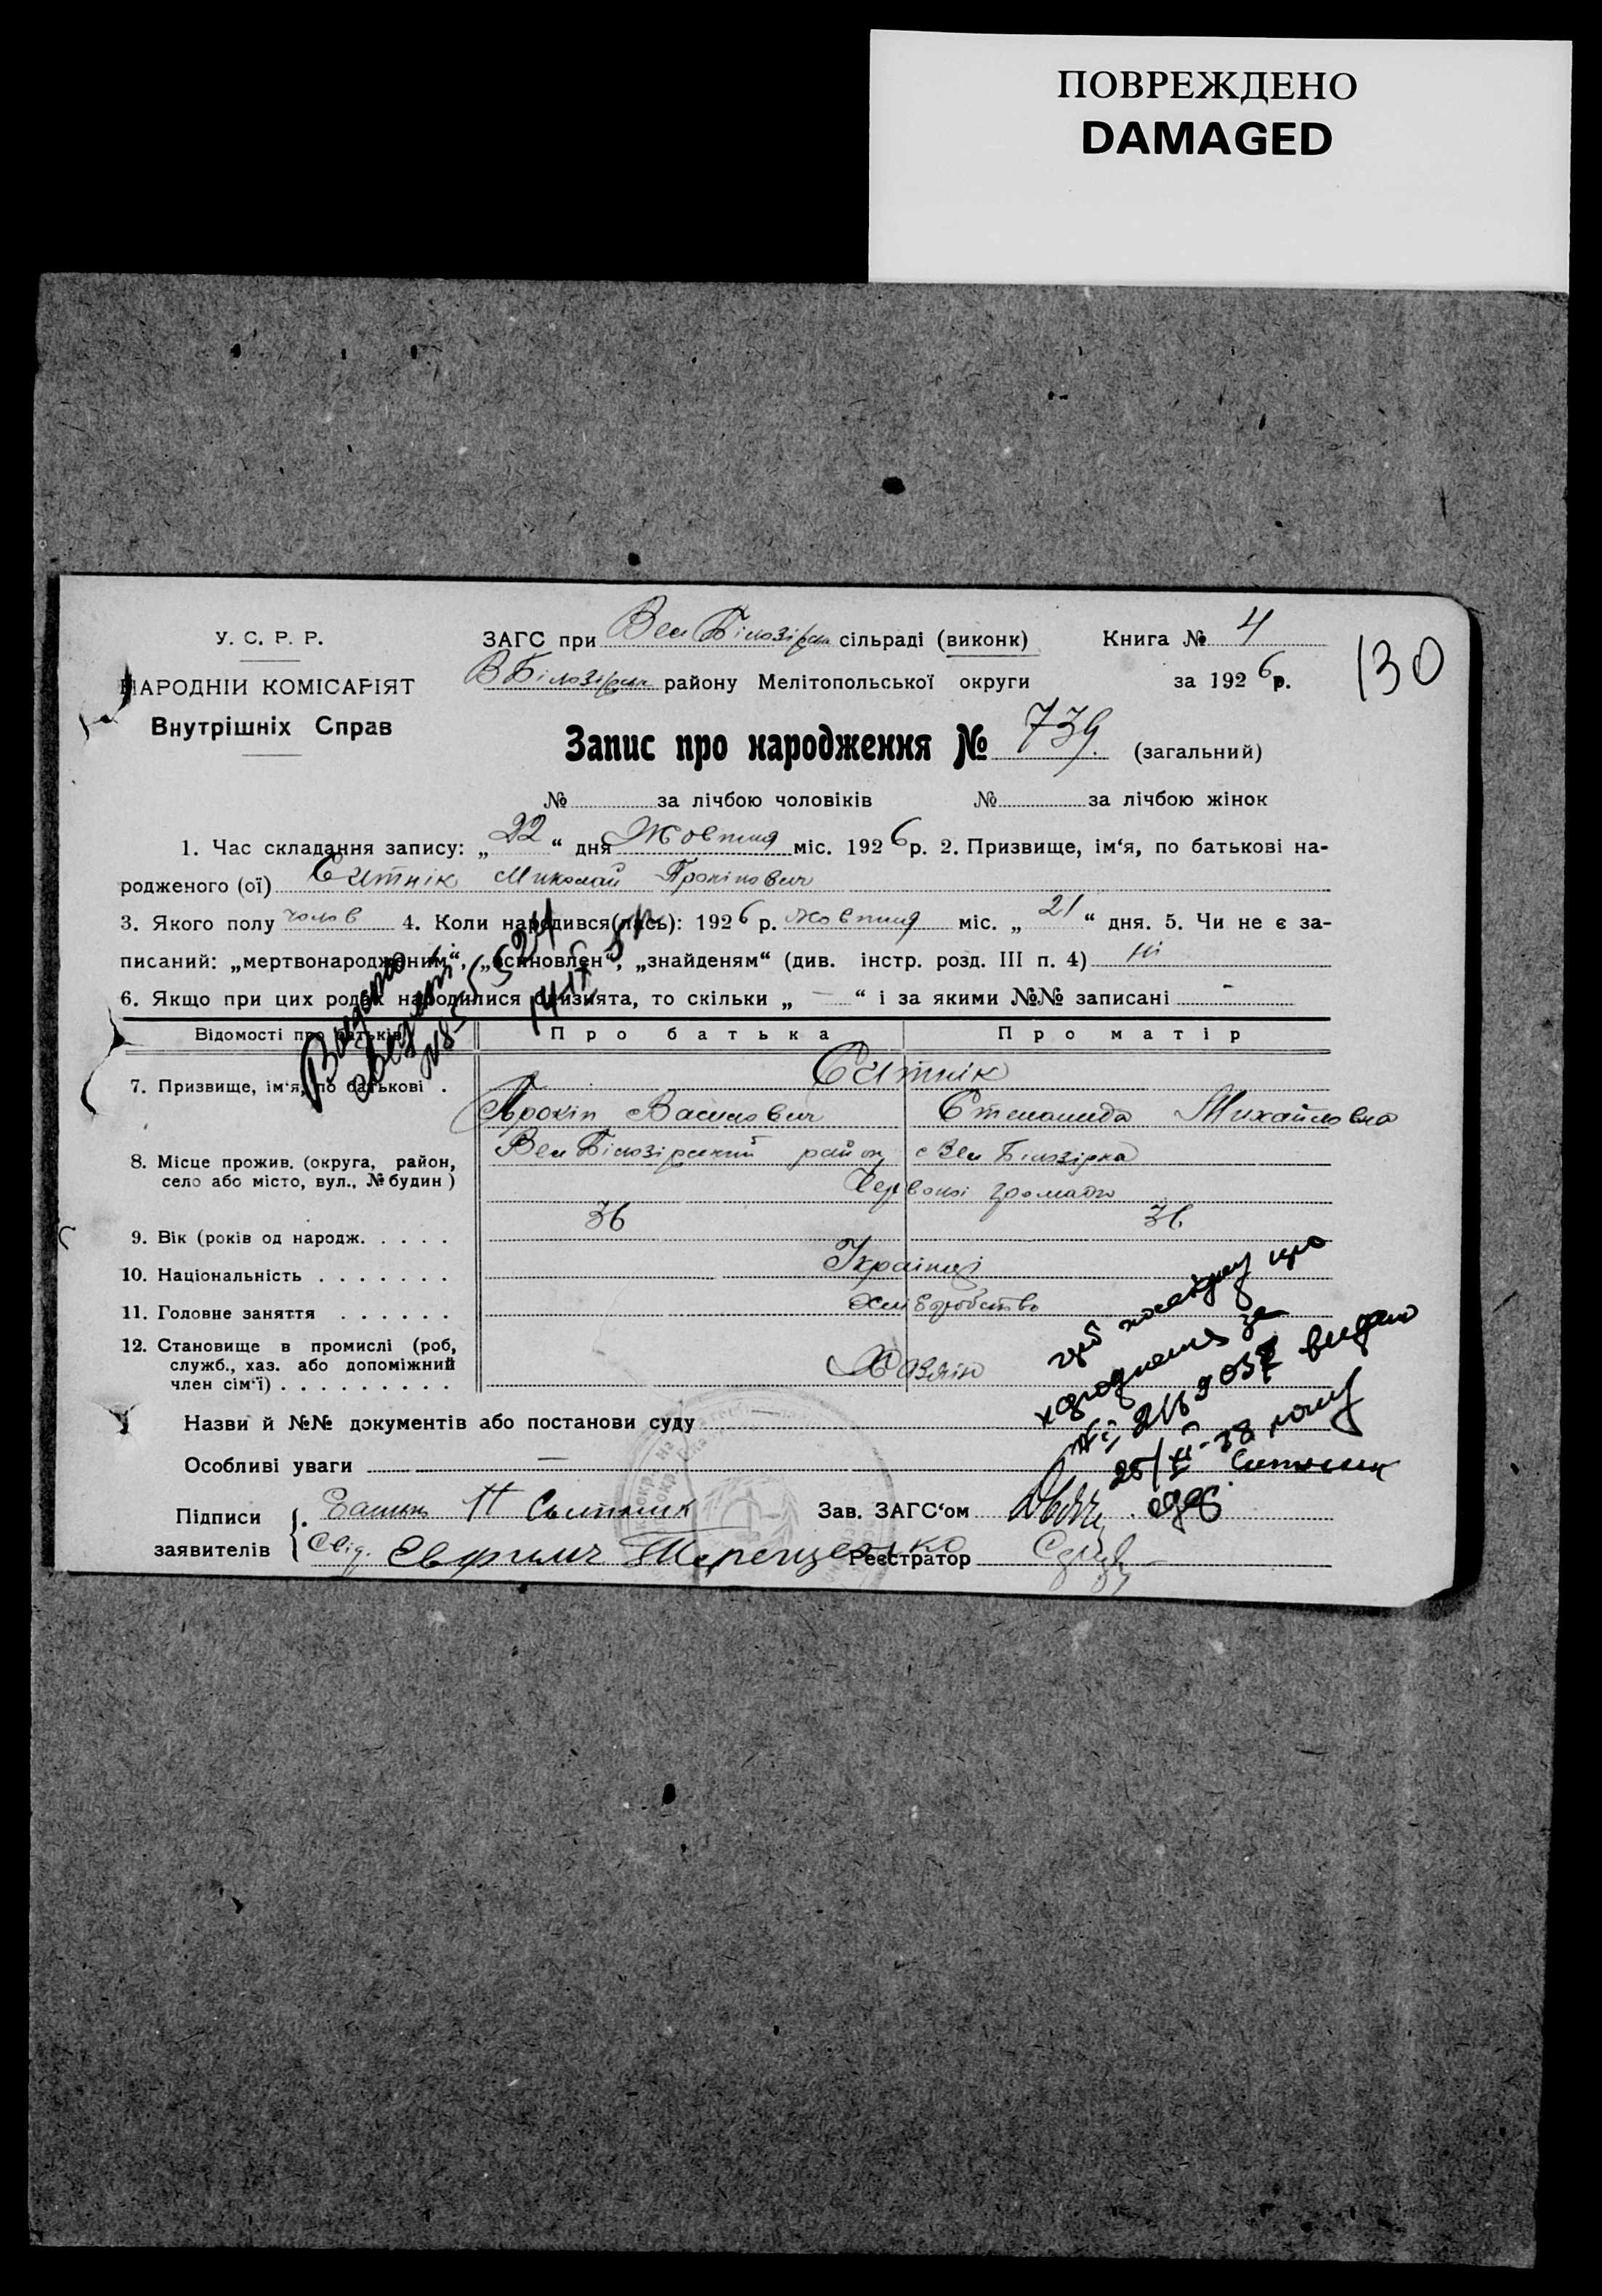 ПОВРЕЖДЕНО
DAMAGED
У. С. Р. Р.
НАРОДНІЙ КОМІСАРІЯТ
Внутрішніх Справ
ЗАГС при Вел Білозірськ сільраді (виконк)
В Білозірськ району Мелітопольської округи
Книга № 4
за 1926 р.
130
Запис про народження № 739. (загальний)
№ за лічбою чоловіків № за лічбою жінок
1. Час складання запису: „22“ дня Жовтня міс. 1926 р. 2. Призвище, ім‘я, по батькові на-
родженого (ої) Ситнік Миколай Прокіпович
3. Якого полу чолов 4. Коли народився(лась): 1926 р. жовтня міс. „21“ дня. 5. Чи не є за-
писаний: „мертвонародженим“, „всиновлен“, „знайденям“ (див. інстр. розд. III п. 4) ні
6. Якщо при цих родах народилися близнята, то скільки „ — “ і за якими №№ записані -
Видано
Відомості про батьків Про батька Про матір
7. Призвище, ім‘я, по батькові . Ситнік
Прокіп Васильович Степанида Михайловна
8. Місце прожив. (округа, район,
село або місто, вул., № будин)
Вел Білозірський район, с Вел Білозірка
Червоної громади
9. Вік (років од народж. . . . . 36 36
10. Національність . . . . . . . Українці
11. Головне заняття . . . . . . Хліборобство
12. Становище в промислі (роб,
служб., хаз. або допоміжний
член сім‘ї) . . . . . . . . . Хазяїн
видано
25/XII-38 року
Назви й №№ документів або постанови суду
Особливі уваги —
Підписи
заявителів
Сытник
Свід. Терещенко
Зав. ЗАГС‘ом
Реєстратор